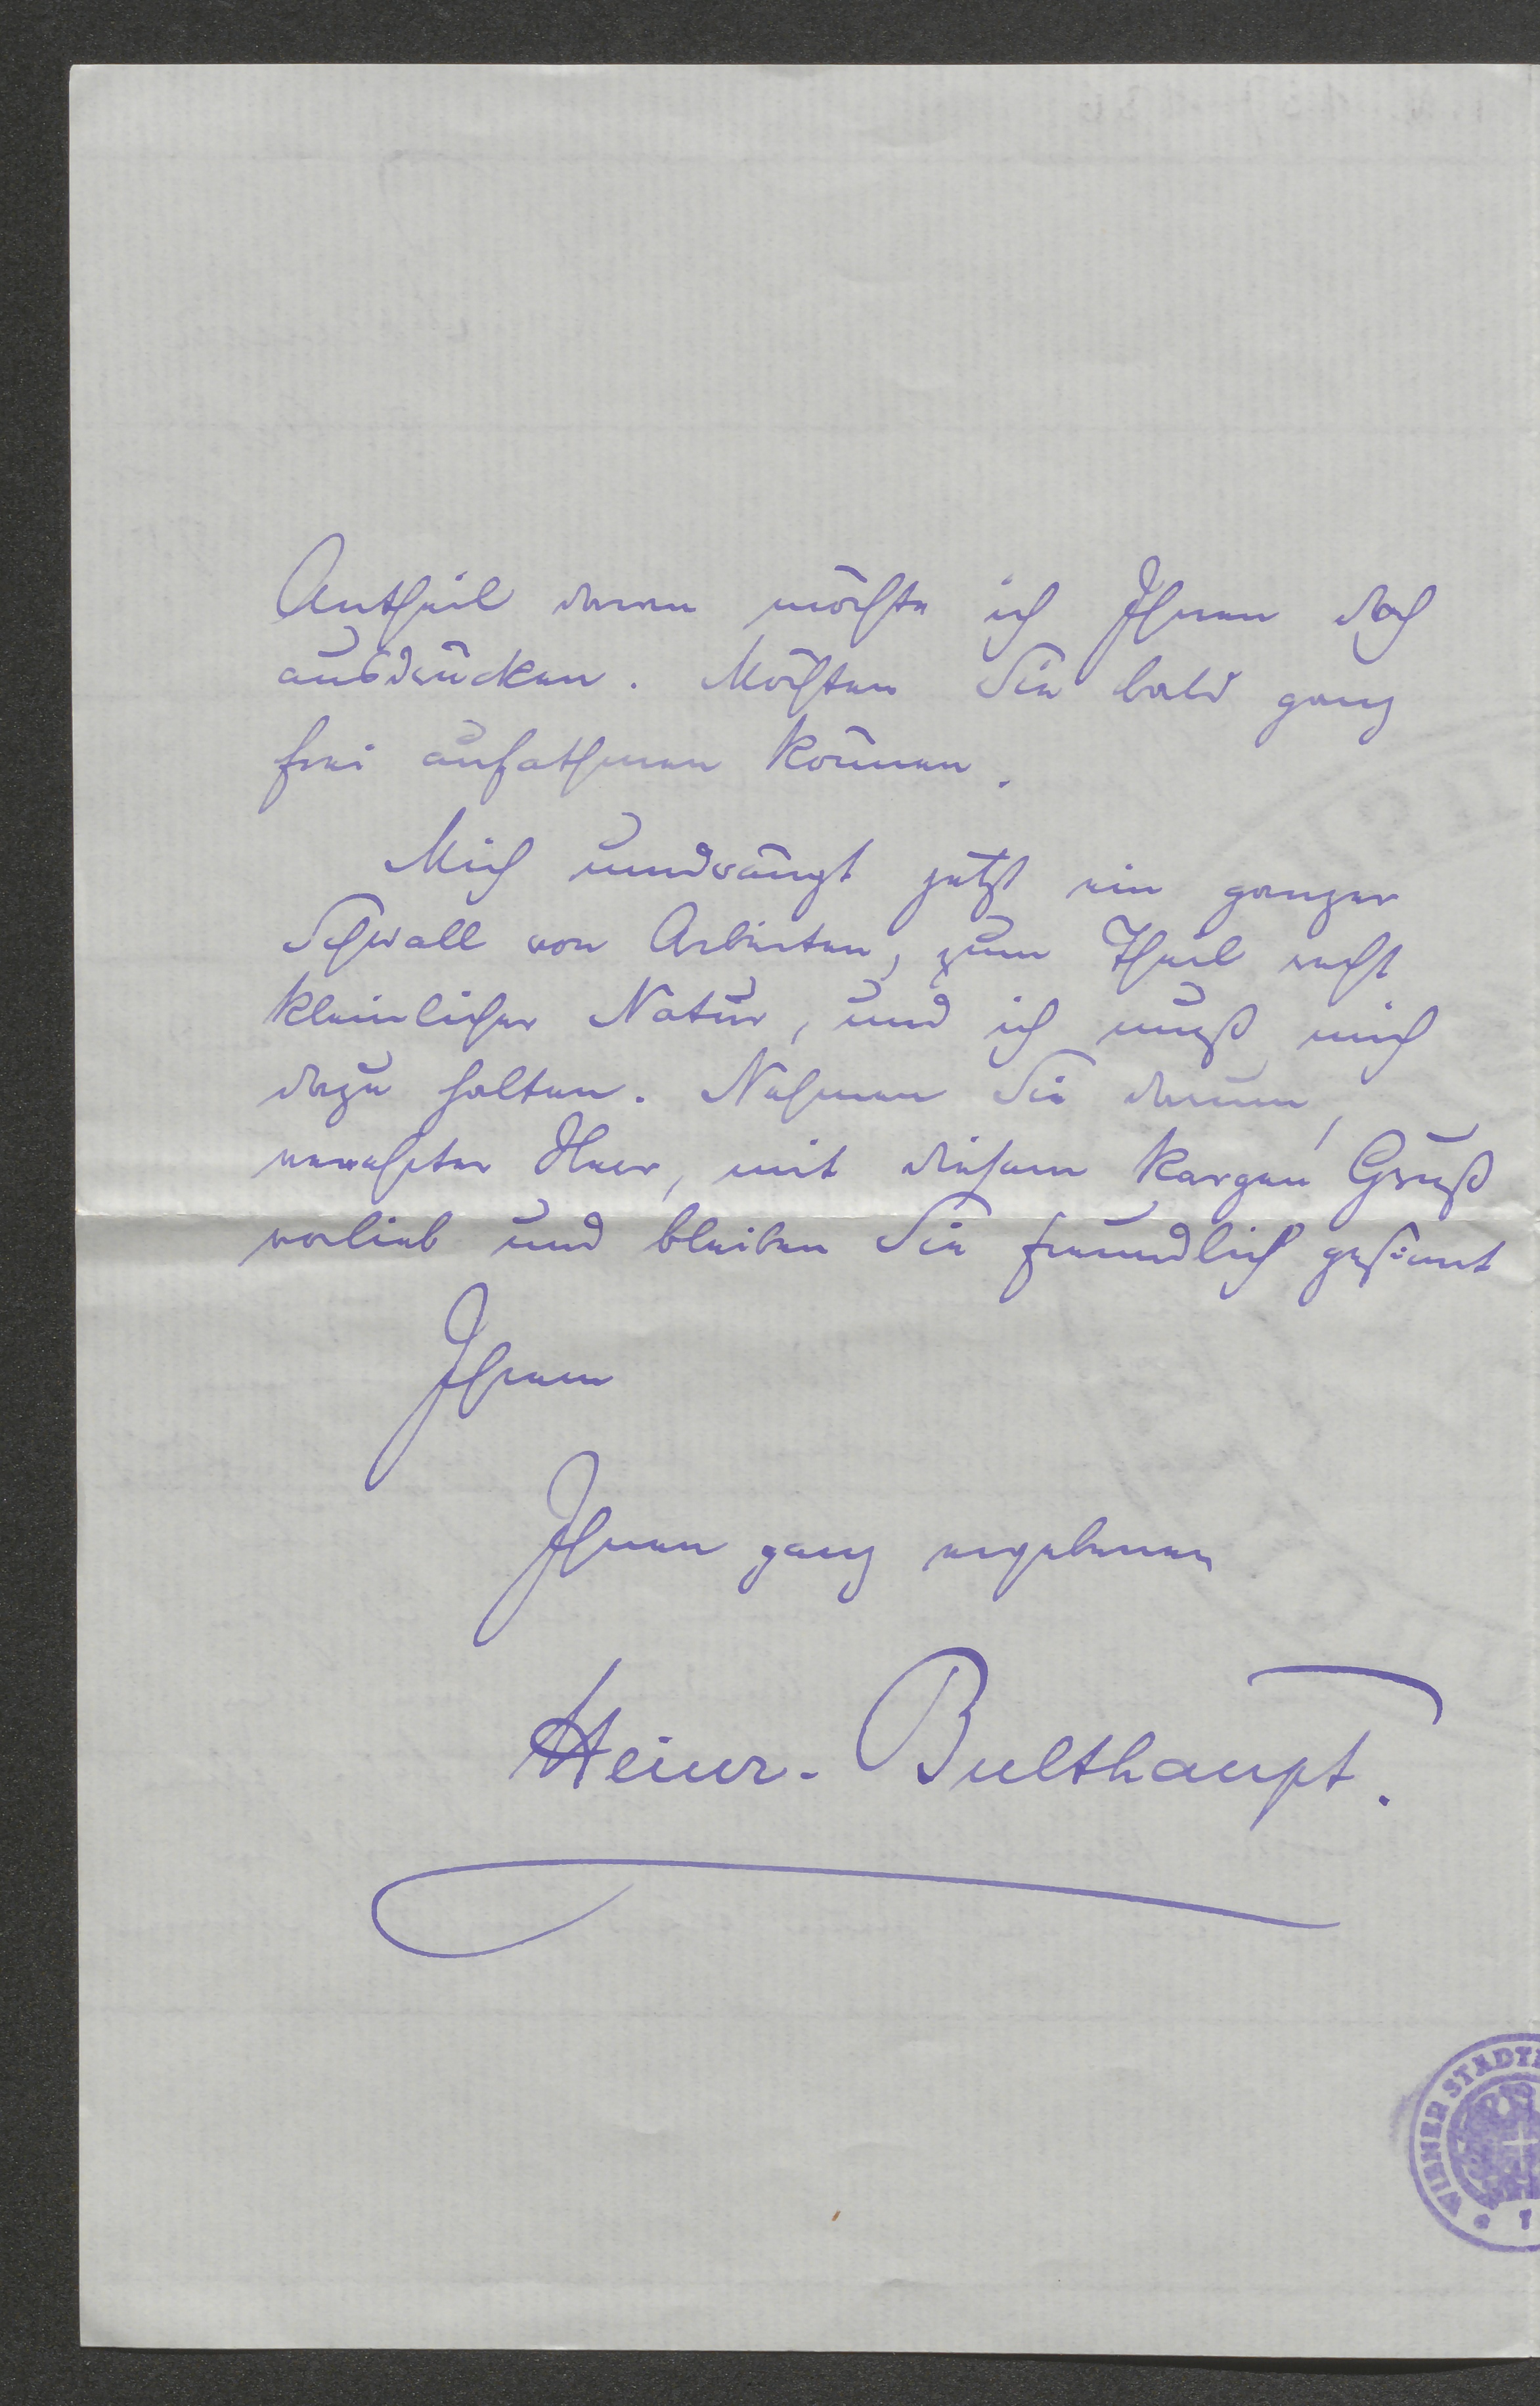 Antheil daran möchte ich Ihnen doch
ausdrücken. Möchten Sie bald ganz
frei aufathmen können.
Mich umdrängt jetzt ein ganzer
Schwall von Arbeiten, zum Theil recht
kleinlicher Natur, und ich muß mich
dazu halten. Nehmen Sie darum,
verehrter Herr, mit diesem kargen Gruß
vorlieb und bleiben Sie freundlich gesinnt
Ihrem
Ihnen ganz ergebenen
Heinr. Bulthaupt.
WIENER STADT